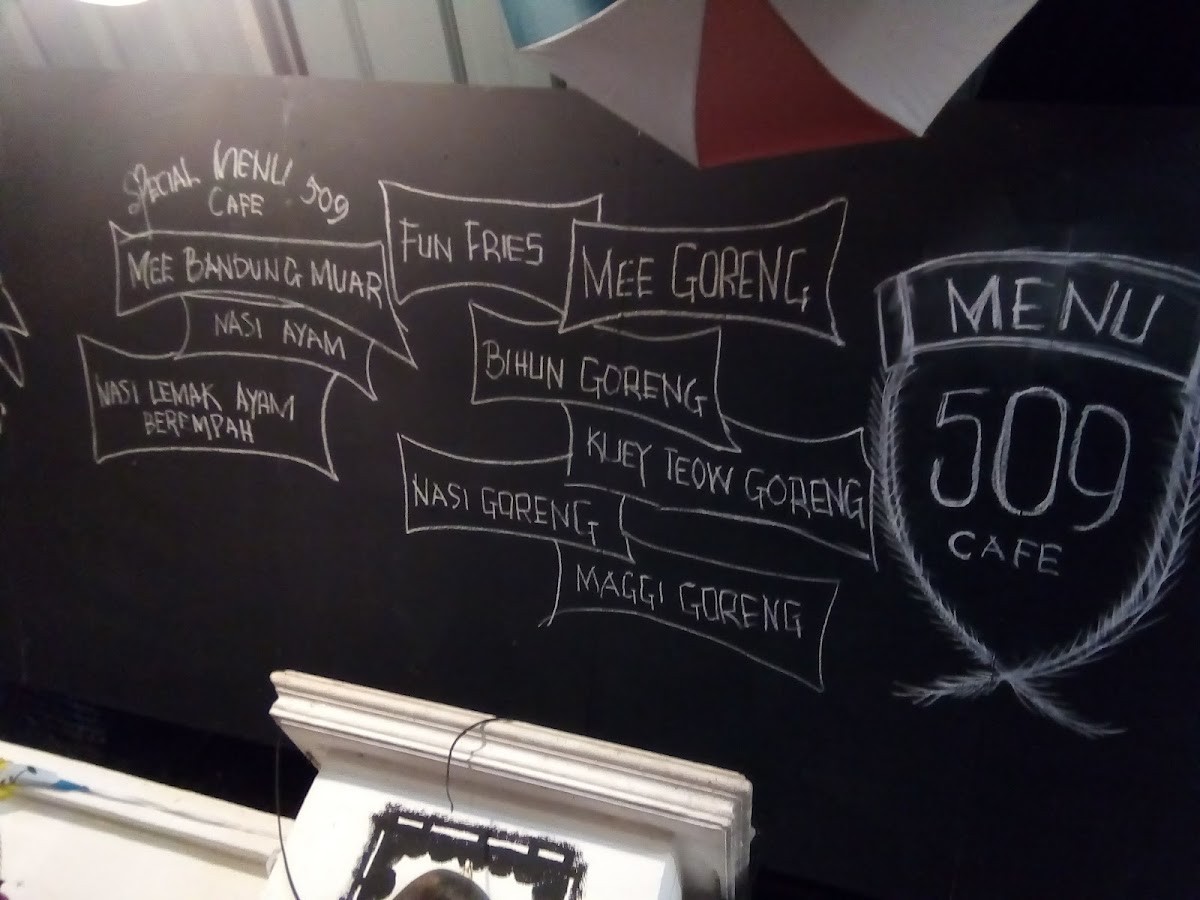 SPECIAL MENU 509
CAFE
MEE BANDUNG MUAR
NASI AYAM
NASI LEMAK AYAM
BEREMPAH
FUN FRIES
MEE GORENG
BIHUN GORENG
KUEY TEOW GORENG
NASI GORENG
MAGGI GORENG
MENU
509
CAFE